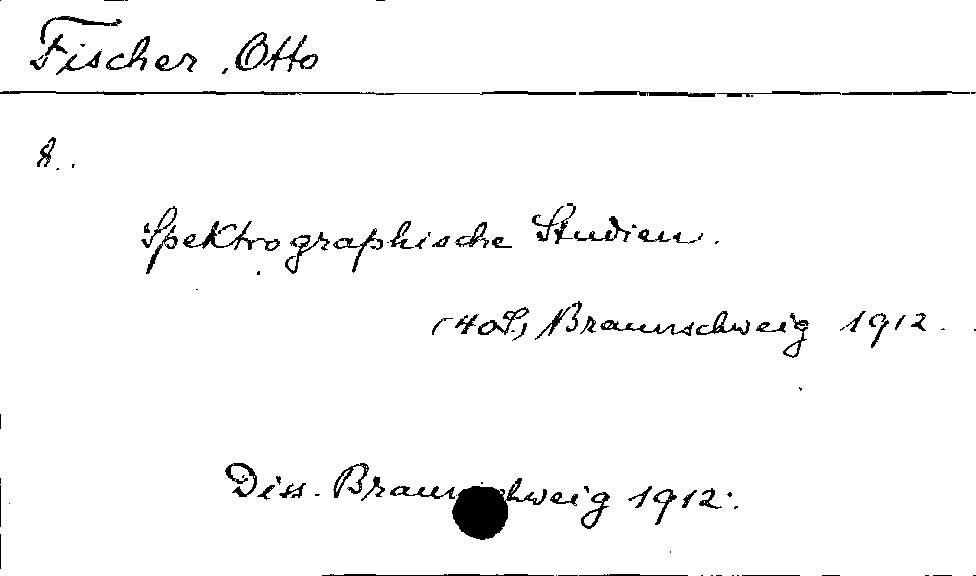 Fischer, Otto
8.
Spektrographische Studien.
(40 S.) Braunschweig 1912.
Diss. Braunschweig 1912.